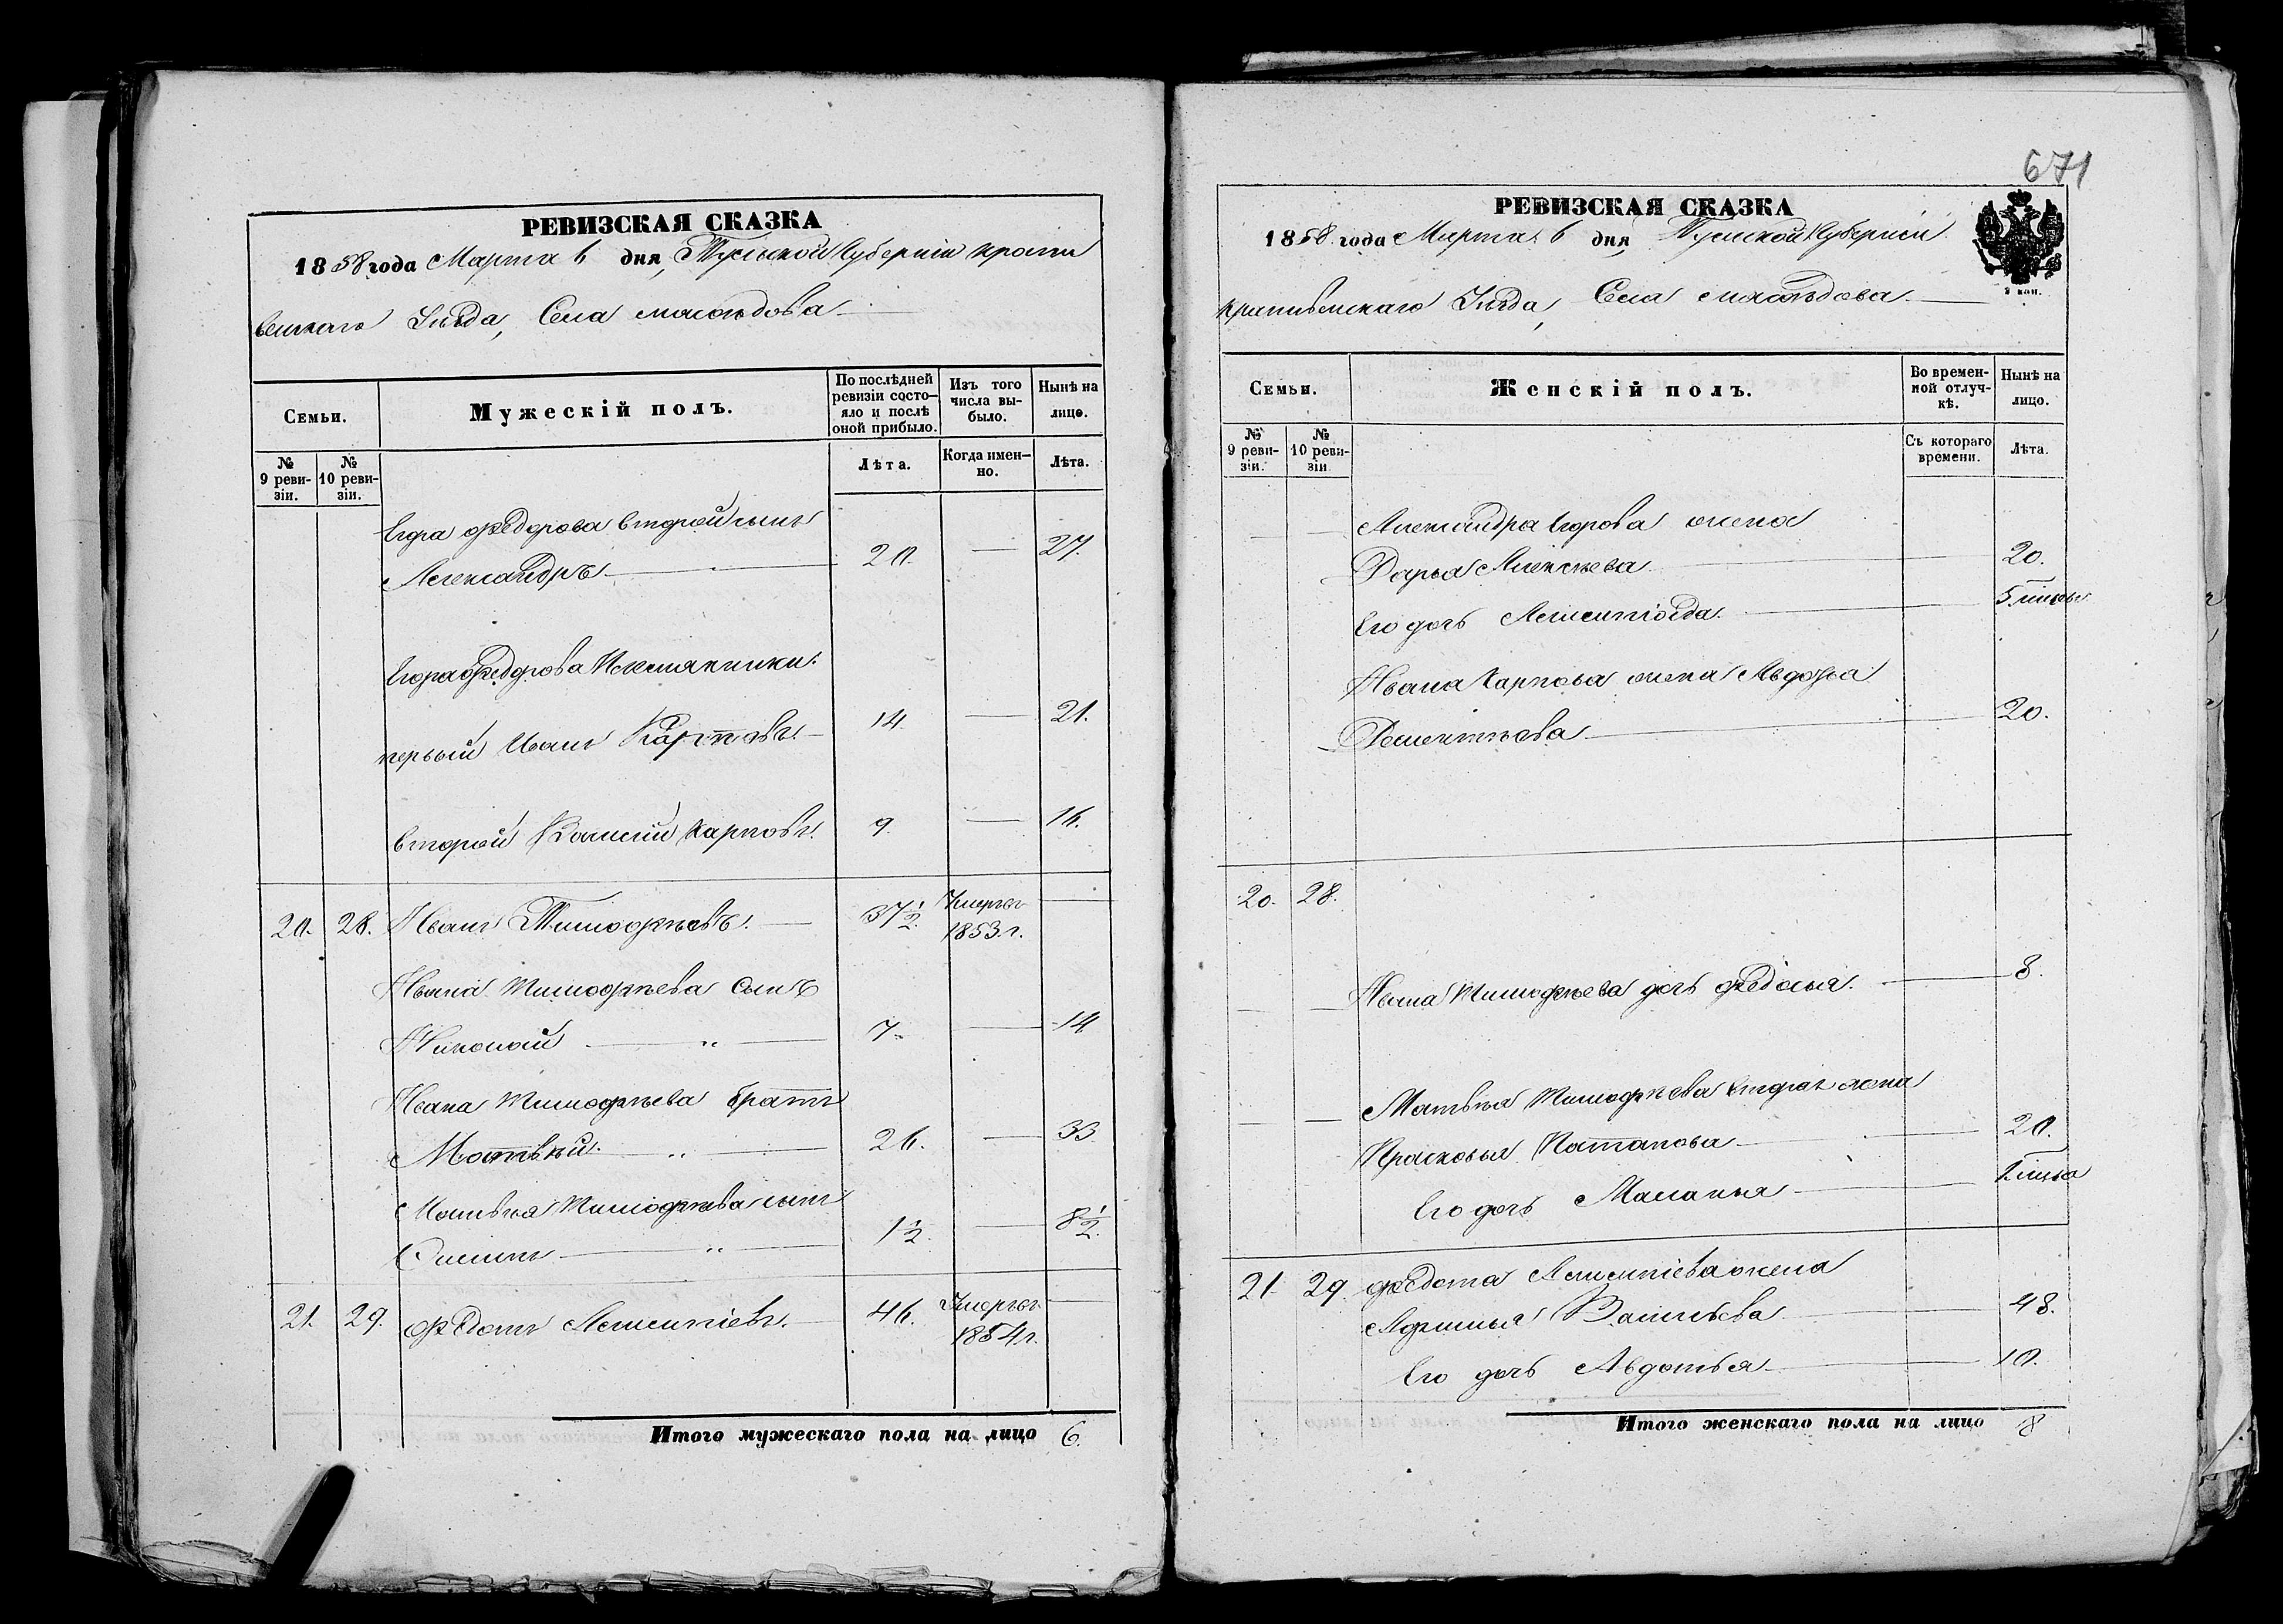 РЕВИЗСКАЯ СКАЗКА
1858 года Марта 6 дня, Тульской Губерніи Крапи
венскаго Уѣзда, Села
Семьи.
Мужескій полъ.
По послѣдней ревизіи состо-
яло и послѣ
оной прибыло.
Изъ того
числа вы-
было.
Нынѣ на
лицо.
№
9 реви-
зіи.
№
10 реви-
зіи.
Лѣта.
Когда имен-
но.
Лѣта.
Егора Ѳедорова второй сынъ
Александръ 20. 27.
Егора Ѳедорова племянники:
первый Иванъ Карповъ 14 21.
второй Василій Карповъ. 9. 16.
20. 28. Иванъ Тимофѣевъ. 37½. Умеръ
1853 г.
Ивана Тимофѣева сынъ
Николай 7 14
Ивана Тимофѣева братъ
Матвѣй. 26. 33
Матвѣя Тимофѣева сынъ
1½. 8½.
21. 29. Ѳедотъ 46. Умеръ
1854 г.
Итого мужескаго пола на лицо 6.
671
РЕВИЗСКАЯ СКАЗКА
1858 года Марта 6 дня, Тульской Губерніи
Крапивенскаго Уѣзда, Села
Семьи.
Женскій полъ.
Во времен-
ной отлуч-
кѣ.
Нынѣ на
лицо.
№
9 реви-
зіи.
№
10 реви-
зіи
Съ котораго
времени.
Лѣта.
Александра Егорова жена
Дарья Алексѣева 20.
Его дочь 5
Ивана Карпова жена Авдотья
20.
20. 28.
Ивана Тимофѣева дочь Ѳедосья. 8.
Матвѣя Тимофѣева вторая жена
Прасковья Потапова 20.
Его дочь Маланья
21 29. Ѳедота жена
Васильева 48.
Его дочь Авдотья 10.
Итого женскаго пола на лицо 8